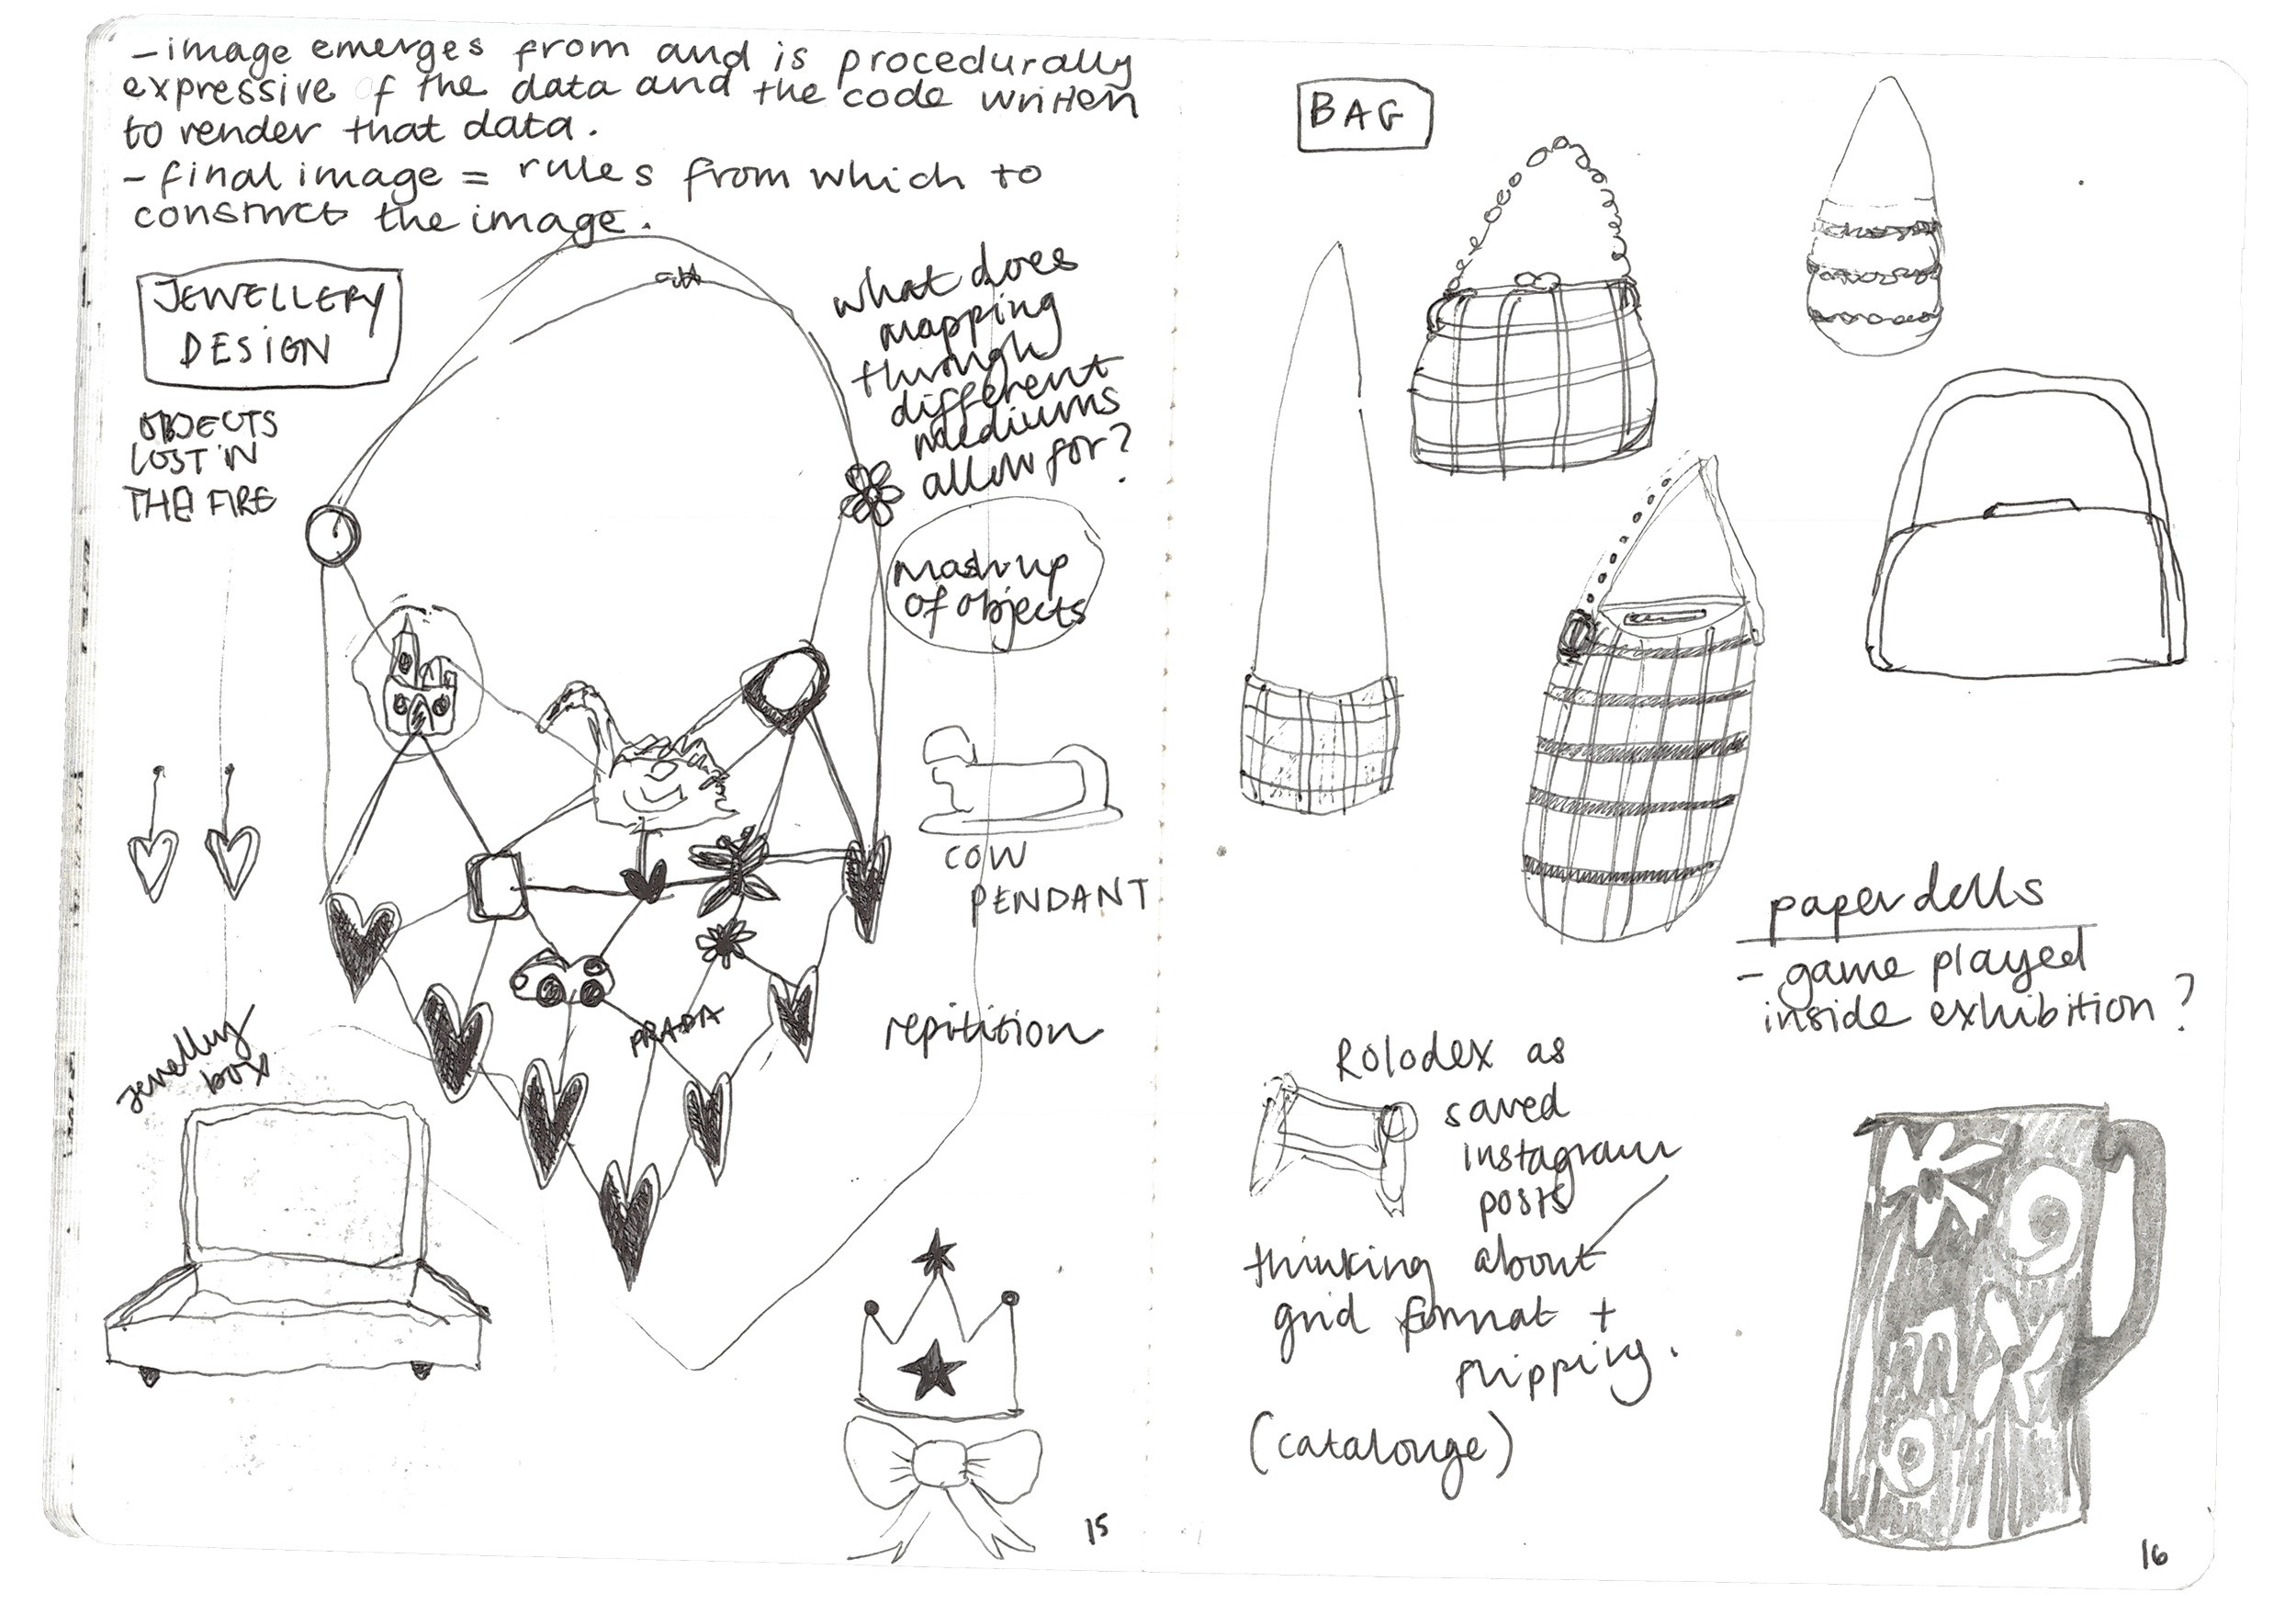 - image emerges from and is procedurally
expressive of the data and the code written
to render that data.
- final image = rules from which to
construct the image.
JEWELLERY
DESIGN
OBJECTS
LOST IN
THE FIRE
what does
mapping
through
different
mediums
allow for?
mash up
of objects
COW
PENDANT
repitition
PRADA
jewellry
box
15
BAG
paper dolls
- game played
inside exhibition?
Rolodex as
saved
instagram
posts
thinking about
grid format +
flipping.
(catalouge)
16